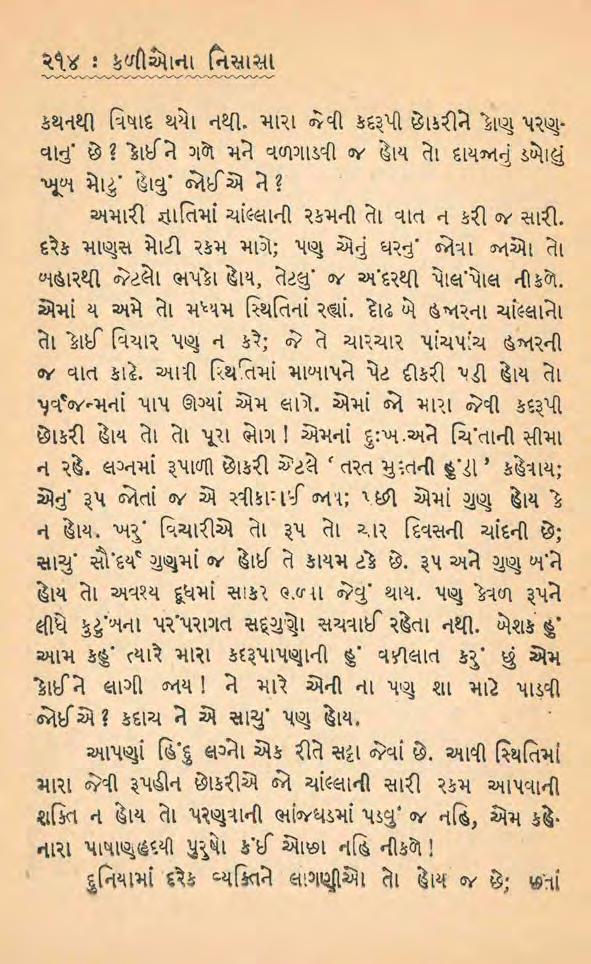 ૨૧૪ : કળીઓના નિસાસા
કથનથી વિષાદ થયો નથી. મારા જેવી કદરૂપી છોકરીને કોણ પરણ-
વાનું છે? કોઈને ગળે મને વળગાડવી જ હોય તો દાયજાનું ડબોલું
ખૂબ મોટું હોવું જોઈએ ને?
અમારી જ્ઞાતિમાં ચાંલ્લાની રકમની તો વાત ન કરી જ સારી.
દરેક માણસ મોટી રકમ માગે; પણ એનું ઘરનું જોવા જાઓ તો
બહારથી જેટલો ભપકો હોય, તેટલું જ અંદરથી પોલંપોલ નીકળે.
એમાં ય અમે તો મધ્યમ સ્થિતિનાં રહ્યાં. દોઢ બે હજારના ચાંલ્લાનો
તો કોઈ વિચાર પણ ન કરે; જે તે ચારચાર પાંચપાંચ હજારની
જ વાત કાઢે. આવી સ્થિતિમાં માબાપને પેટ દીકરી પડી હોય તો
પૂર્વજન્મનાં પાપ ઊગ્યાં એમ લાગે. એમાં જો મારા જેવી કદરૂપી
છોકરી હોય તો તો પૂરા ભોગ! એમનાં દુઃખ અને ચિંતાની સીમા
ન રહે. લગ્નમાં રૂપાળી છોકરી એટલે ‘ તરત મુદતની હૂંડી ’ કહેવાય;
એનું રૂપ જોતાં જ એ સ્વીકારાઈ જાય; પછી એમાં ગુણ હોય કે
ન હોય. ખરું વિચારીએ તો રૂપ તો ચાર દિવસની ચાંદની છે;
સાચું સૌંદર્ય ગુણમાં જ હોઈ તે કાયમ ટકે છે. રૂપ અને ગુણ બંને
હોય તો અવશ્ય દૂધમાં સાકર ભળ્યા જેવું થાય. પણ કેવળ રૂપને
લીધે કુટુંબના પરંપરાગત સદ્ગુણો સચવાઈ રહેતા નથી. બેશક હું
આમ કહું ત્યારે મારા કદરૂપાપણાની હું વકીલાત કરું છું એમ
કોઈને લાગી જાય! ને મારે એની ના પણ શા માટે પાડવી
જોઈએ? કદાચ ને એ સાચું પણ હોય.
આપણાં હિંદુ લગ્નો એક રીતે સટ્ટા જેવાં છે. આવી સ્થિતિમાં
મારા જેવી રૂપહીન છોકરીએ જો ચાંલ્લાની સારી રકમ આપવાની
શક્તિ ન હોય તો પરણવાની ભાંજઘડમાં પડવું જ નહિ, એમ કહે-
નારા પાષાણહૃદયી પુરુષો કંઈ ઓછા નહિ નીકળે!
દુનિયામાં દરેક વ્યક્તિને લાગણીઓ તો હોય જ છે; છતાં